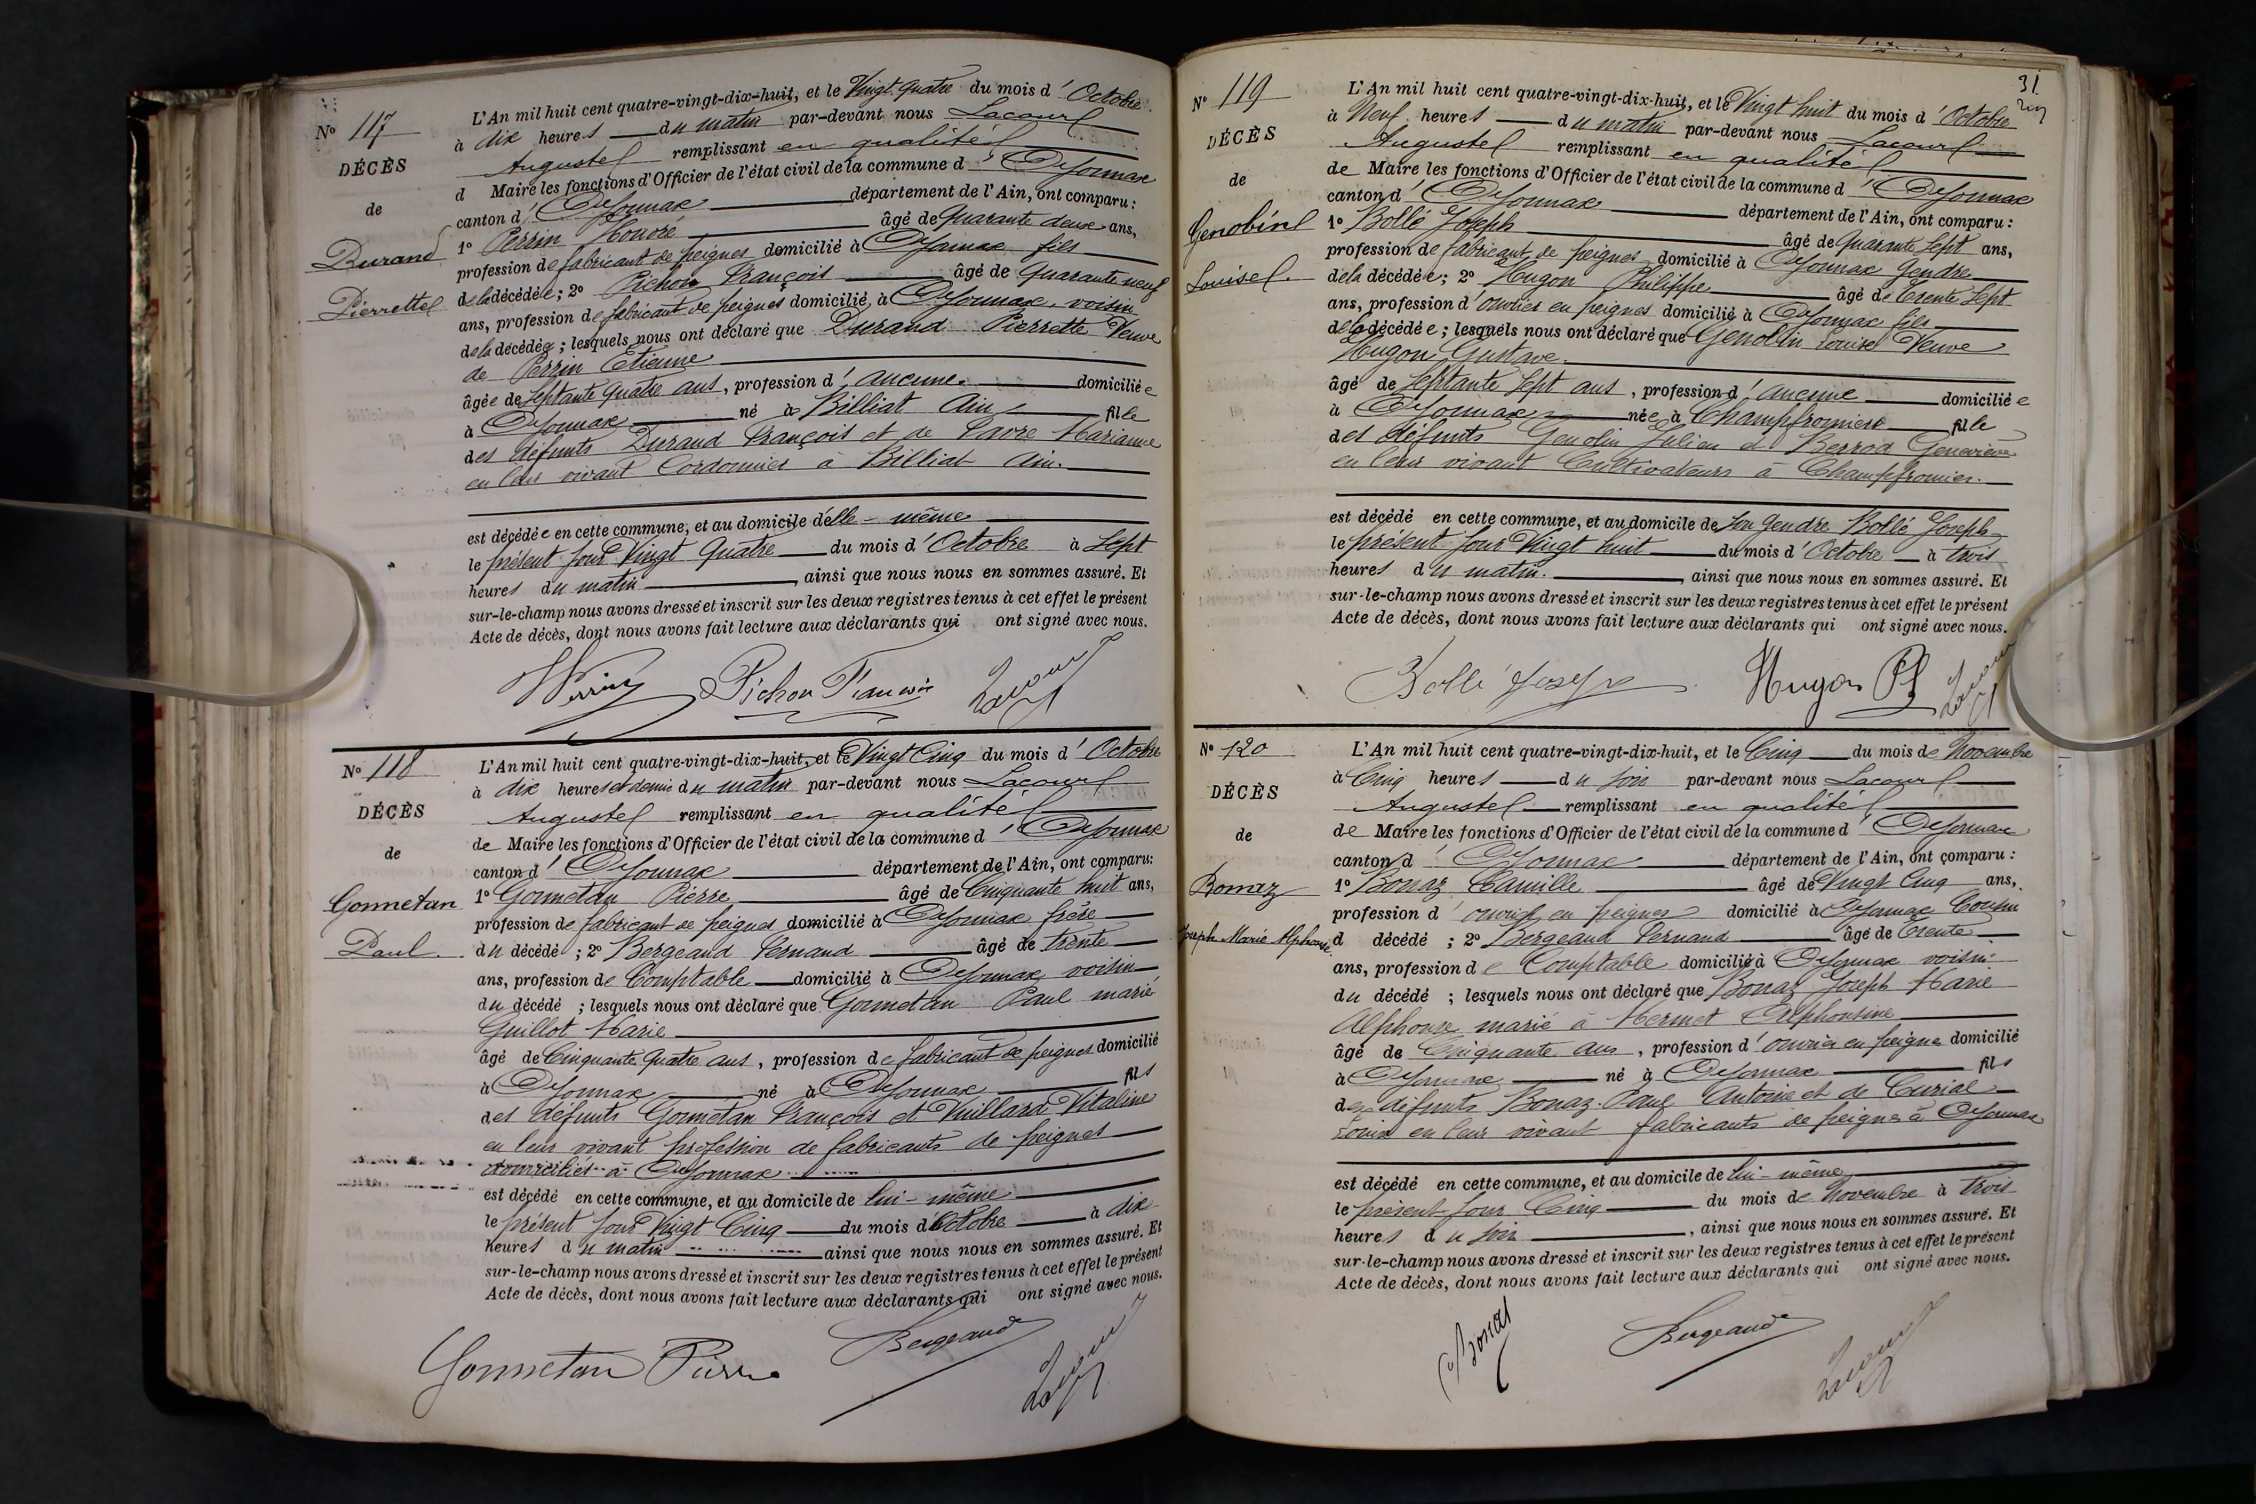 N° 117
DÉCÈS
de
Durand
Pierrette
L'An mil huit cent quatre-vingt-dix-huit, et le Vingt quatre du mois d'Octobre
à dix heures du matin par-devant nous Lacour
Auguste remplissant en qualité
d Maire les fonctions d'Officier de l'état civil de la commune d'Oyonnax
canton d'Oyonnax département de l'Ain, ont comparu :
1° Perrin Honoré âgé de Quarante deux ans,
profession de fabricant de peignes domicilié à Oyonnax fils
de la décédée ; 2° Pichon François âgé de Quarante neuf
ans, profession de fabricant de peignes domicilié à Oyonnax, voisin
de la décédée ; lesquels nous ont déclaré que Durand Pierrette Veuve
de Perrin Etienne
âgée de Septante quatre ans, profession d'aucune. domiciliée
à Oyonnax né à Billiat Ain fille
des défunts Durand François et de Favre Marianne
en leur vivant Cordonnier à Billiat Ain.
est décédée en cette commune, et au domicile d'elle-même
le présent jour Vingt Quatre du mois d'Octobre à Sept
heures du matin, ainsi que nous nous en sommes assuré. Et
sur-le-champ nous avons dressé et inscrit sur les deux registres tenus à cet effet le présent
Acte de décès, dont nous avons fait lecture aux déclarants qui ont signé avec nous.
Perrin Pichon François Lacour
N° 118
DÉCÈS
de
Gonnetan
Paul.
L'An mil huit cent quatre-vingt-dix-huit, et le Vingt Cinq du mois d'Octobre
à dix heures et demie du matin par-devant nous Lacour
Auguste remplissant en qualité
de Maire les fonctions d'Officier de l'état civil de la commune d'Oyonnax
canton d'Oyonnax département de l'Ain, ont comparu :
1° Gonnetan Pierre âgé de Cinquante huit ans,
profession de fabricant de peignes domicilié à Oyonnax frère
du décédé ; 2° Bergeaud Fernand âgé de trente
ans, profession de Comptable domicilié à Oyonnax voisin
du décédé ; lesquels nous ont déclaré que Gonnetan Paul marié
Guillot Marie
âgé de Cinquante Quatre ans, profession de fabricant de peignes domicilié
à Oyonnax né à Oyonnax fils
des défunts Gonnetan François et Vuillard Vitaline
en leur vivant profession de fabricants de peignes
domiciliés à Oyonnax
est décédé en cette commune, et au domicile de lui-même
le présent jour Vingt Cinq du mois d'Octobre à dix
heures du matin ainsi que nous nous en sommes assuré. Et
sur-le-champ nous avons dressé et inscrit sur les deux registres tenus à cet effet le présent
Acte de décès, dont nous avons fait lecture aux déclarants qui ont signé avec nous.
Gonnetan Pierre Bergeaud Lacour
31
N° 119
DÉCÈS
de
Genolin
Louise.
L'An mil huit cent quatre-vingt-dix-huit, et le Vingt huit du mois d'Octobre
à Neuf heures du matin par-devant nous Lacour
Auguste remplissant en qualité
de Maire les fonctions d'Officier de l'état civil de la commune d'Oyonnax
canton d'Oyonnax département de l'Ain, ont comparu :
1° Bollé Joseph âgé de Quarante Sept ans,
profession de fabricant de peignes domicilié à Oyonnax Gendre
de la décédée ; 2° Hugon Philippe âgé de Trente Sept
ans, profession d'ouvrier en peignes domicilié à Oyonnax fils
de la décédée ; lesquels nous ont déclaré que Genolin Louise Veuve
Hugon Gustave.
âgé de Septante Sept ans, profession d'aucune domiciliée
à Oyonnax née à Champfromier fille
des défunts Genolin Julien et Berrod Geneviève
en leur vivant Cultivateurs à Champfromier.
est décédé en cette commune, et au domicile de son Gendre Bollé Joseph
le présent jour Vingt huit du mois d'Octobre à trois
heures du matin., ainsi que nous nous en sommes assuré. Et
sur-le-champ nous avons dressé et inscrit sur les deux registres tenus à cet effet le présent
Acte de décès, dont nous avons fait lecture aux déclarants qui ont signé avec nous.
Bollé Joseph Hugon Ph Lacour
N° 120
DÉCÈS
de
Bonaz
Joseph Marie Alphonse
L'An mil huit cent quatre-vingt-dix-huit, et le Cinq du mois de Novembre
à Cinq heures du soir par-devant nous Lacour
Auguste remplissant en qualité
de Maire les fonctions d'Officier de l'état civil de la commune d'Oyonnax
canton d'Oyonnax département de l'Ain, ont comparu :
1° Bonaz Camille âgé de Vingt Cinq ans,
profession d'ouvrier en peignes domicilié à Oyonnax Cousin
d décédé ; 2° Bergeaud Fernand âgé de Trente
ans, profession de Comptable domicilié à Oyonnax voisin
du décédé ; lesquels nous ont déclaré que Bonaz Joseph Marie
Alphonse marié à Mermet Alphonsine
âgé de Cinquante ans, profession d'ouvrier en peigne domicilié
à Oyonnax né à Oyonnax fils
des défunts Bonaz Paul Antoine et de Curial
Louise en leur vivant fabricants de peignes à Oyonnax
est décédé en cette commune, et au domicile de lui-même
le présent jour Cinq du mois de Novembre à trois
heures du soir, ainsi que nous nous en sommes assuré. Et
sur-le-champ nous avons dressé et inscrit sur les deux registres tenus à cet effet le présent
Acte de décès, dont nous avons fait lecture aux déclarants qui ont signé avec nous.
Bonaz Bergeaud Lacour